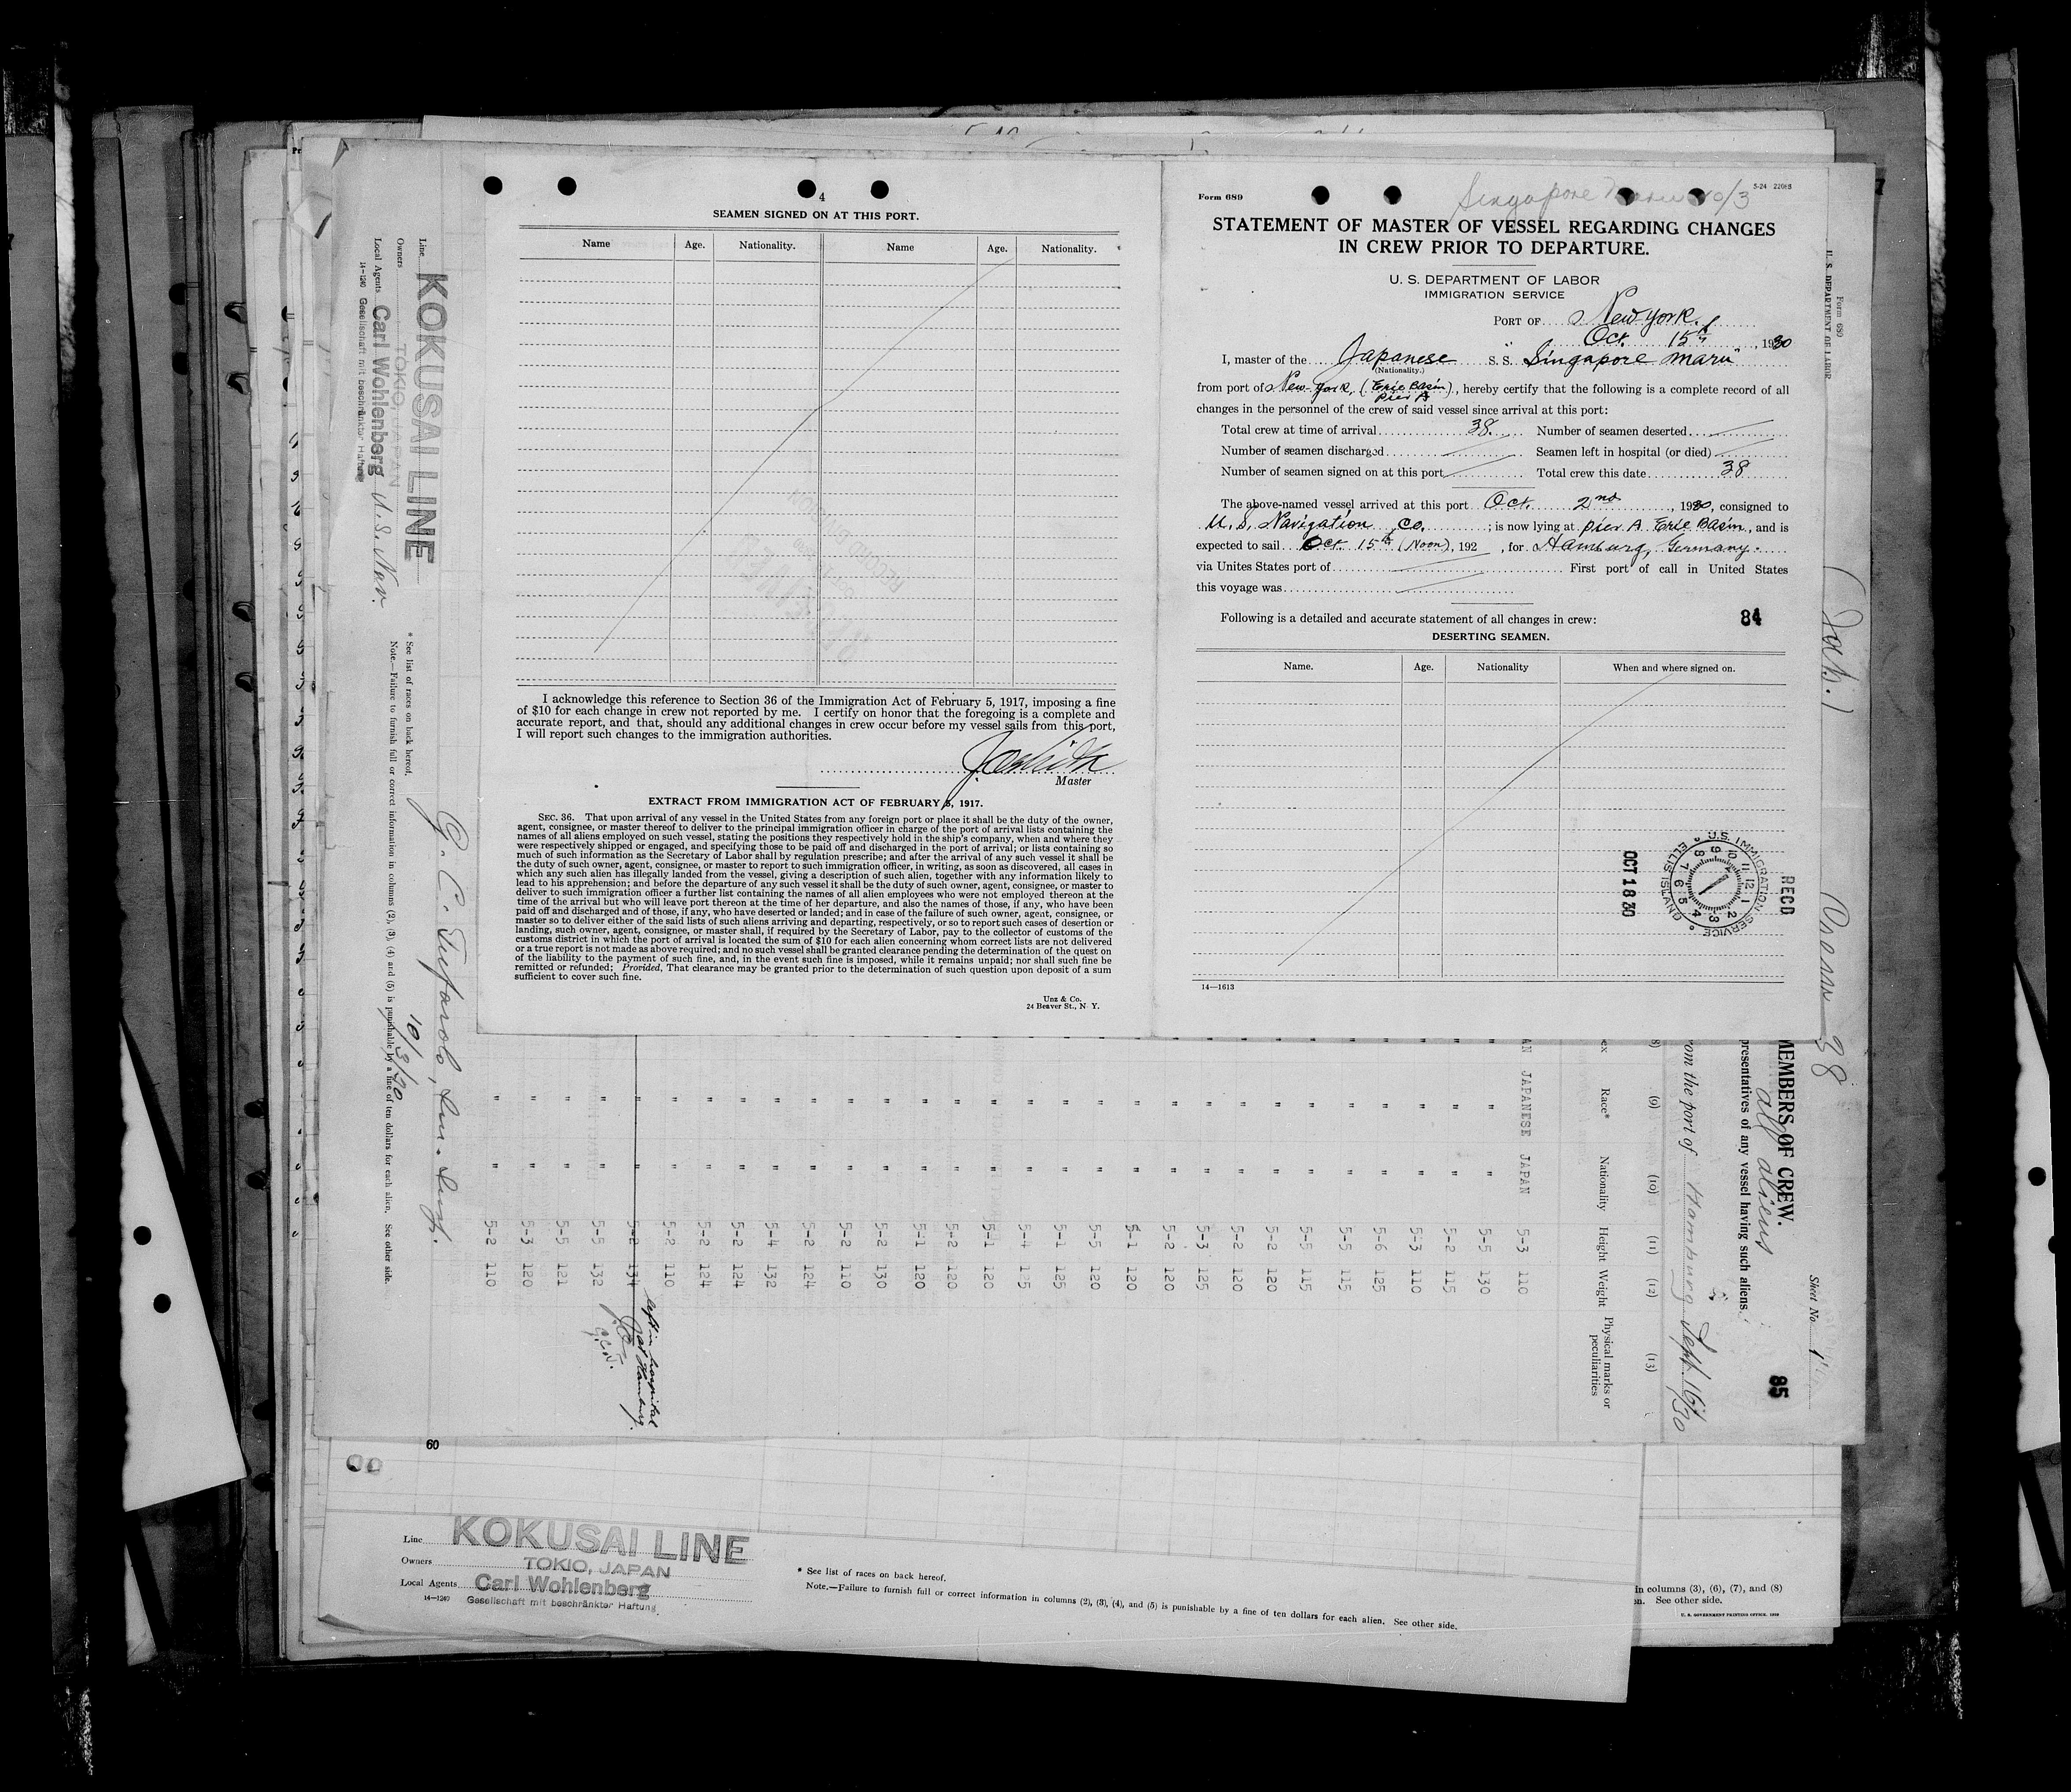 4
SEAMEN SIGNED ON AT THIS PORT.
Name Age. Nationality. Name Age. Nationality.
I acknowledge this reference to Section 36 of the Immigration Act of February 5, 1917, imposing a fine
of $10 for each change in crew not reported by me. I certify on honor that the foregoing is a complete and
accurate report, and that, should any additional changes in crew occur before my vessel sails from this port,
I will report such changes to the immigration authorities.
Master
EXTRACT FROM IMMIGRATION ACT OF FEBRUARY 5, 1917.
SEC. 36. That upon arrival of any vessel in the United States from any foreign port or place it shall be the duty of the owner,
agent, consignee, or master thereof to deliver to the principal immigration officer in charge of the port of arrival lists containing the
names of all aliens employed on such vessel, stating the positions they respectively hold in the ship's company, when and where they
were respectively shipped or engaged, and specifying those to be paid off and discharged in the port of arrival; or lists containing so
much of such information as the Secretary of Labor shall by regulation prescribe; and after the arrival of any such vessel it shall be
the duty of such owner, agent, consignee, or master to report to such immigration officer, in writing, as soon as discovered, all cases in
which any such alien has illegally landed from the vessel, giving a description of such alien, together with any information likely to
lead to his apprehension; and before the departure of any such vessel it shall be the duty of such owner, agent, consignee, or master to
deliver to such immigration officer a further list containing the names of all alien employees who were not employed thereon at the
time of the arrival but who will leave port thereon at the time of her departure, and also the names of those, if any, who have been
paid off and discharged and of those, if any, who have deserted or landed; and in case of the failure of such owner, agent, consignee, or
master so to deliver either of the said lists of such aliens arriving and departing, respectively, or so to report such cases of desertion or
landing, such owner, agent, consignee, or master shall, if required by the Secretary of Labor, pay to the collector of customs of the
customs district in which the port of arrival is located the sum of $10 for each alien concerning whom correct lists are not delivered
or a true report is not made as above required; and no such vessel shall be granted clearance pending the determination of the quest on
of the liability to the payment of such fine, and, in the event such fine is imposed, while it remains unpaid; nor shall such fine be
remitted or refunded; Provided, That clearance may be granted prior to the determination of such question upon deposit of a sum
sufficient to cover such fine.
Unz & Co.
24 Beaver St., N. Y.
Form 689
Singapore Maru 10/3
5-24 22088
STATEMENT OF MASTER OF VESSEL REGARDING CHANGES
IN CREW PRIOR TO DEPARTURE.
U. S. DEPARTMENT OF LABOR
IMMIGRATION SERVICE
PORT OF New York
Oct. 15th, 1930
I, master of the Japanese S. S. "Singapore Maru"
(Nationality.)
from port of New York, (Erie Basin), hereby certify that the following is a complete record of all
Pier A
changes in the personnel of the crew of said vessel since arrival at this port:
Total crew at time of arrival 38. Number of seamen deserted
Number of seamen discharged Seamen left in hospital (or died)
Number of seamen signed on at this port Total crew this date 38
The above-named vessel arrived at this port Oct. 2nd, 1930, consigned to
U. S. Navigation Co. ; is now lying at pier A Erie Basin, and is
expected to sail Oct. 15th (Noon), 192 , for Hamburg, Germany.
via Unites States port of First port of call in United States
this voyage was
Following is a detailed and accurate statement of all changes in crew:
84
DESERTING SEAMEN.
Name. Age. Nationality When and where signed on.
RECD
U.S. IMMIGRATION SERVICE
ELLIS ISLAND
OCT 18 30
14—1613
Form 689
U. S. DEPARTMENT OF LABOR
38
Sheet No. 1
85
MEMBERS OF CREW.
all aliens
presentatives of any vessel having such aliens.
rom the port of Hamburg Sept. 16th/30
(9) (10) (11) (12) (13)
ex Race* Nationality Height Weight Physical marks or
peculiarities
AN JAPANESE JAPAN 5-3 110
" " 5-5 130
" " 5-2 115
" " 5-3 110
" " 5-6 125
" " 5-5 115
" " 5-5 115
" " 5-2 120
" " 5-2 120
" " 5-3 125
" " 5-2 120
" " 5-1 120
" " 5-5 120
" " 5-1 125
" " 5-4 135
" " 5-1 120
" " 5-2 120
" " 5-1 120
" " 5-2 130
" " 5-2 110
" " 5-2 124
" " 5-4 132
" " 5-2 124
" " 5-2 124
" " 5-2 110
" " 5-2 134 left in hospital
at Hamburg.
" " 5-5 132
" " 5-5 121
" " 5-3 120
" " 5-2 110
Line KOKUSAI LINE
Owners TOKIO, JAPAN
Local Agents Carl Wohlenberg U. S. Nav.
14—1240 Gesellschaft mit beschränkter Haftung
* See list of races on back hereof.
Note.—Failure to furnish full or correct information in columns (2), (3), (4) and (5) is punishable by a fine of ten dollars for each alien. See other side.
10/3/30
60
Line KOKUSAI LINE
Owners TOKIO, JAPAN
Local Agents Carl Wohlenberg
14—1240 Gesellschaft mit beschränkter Haftung
* See list of races on back hereof.
Note.—Failure to furnish full or correct information in columns (2), (3), (4), and (5) is punishable by a fine of ten dollars for each alien. See other side.
in columns (3), (6), (7), and (8)
en. See other side.
U. S. GOVERNMENT PRINTING OFFICE